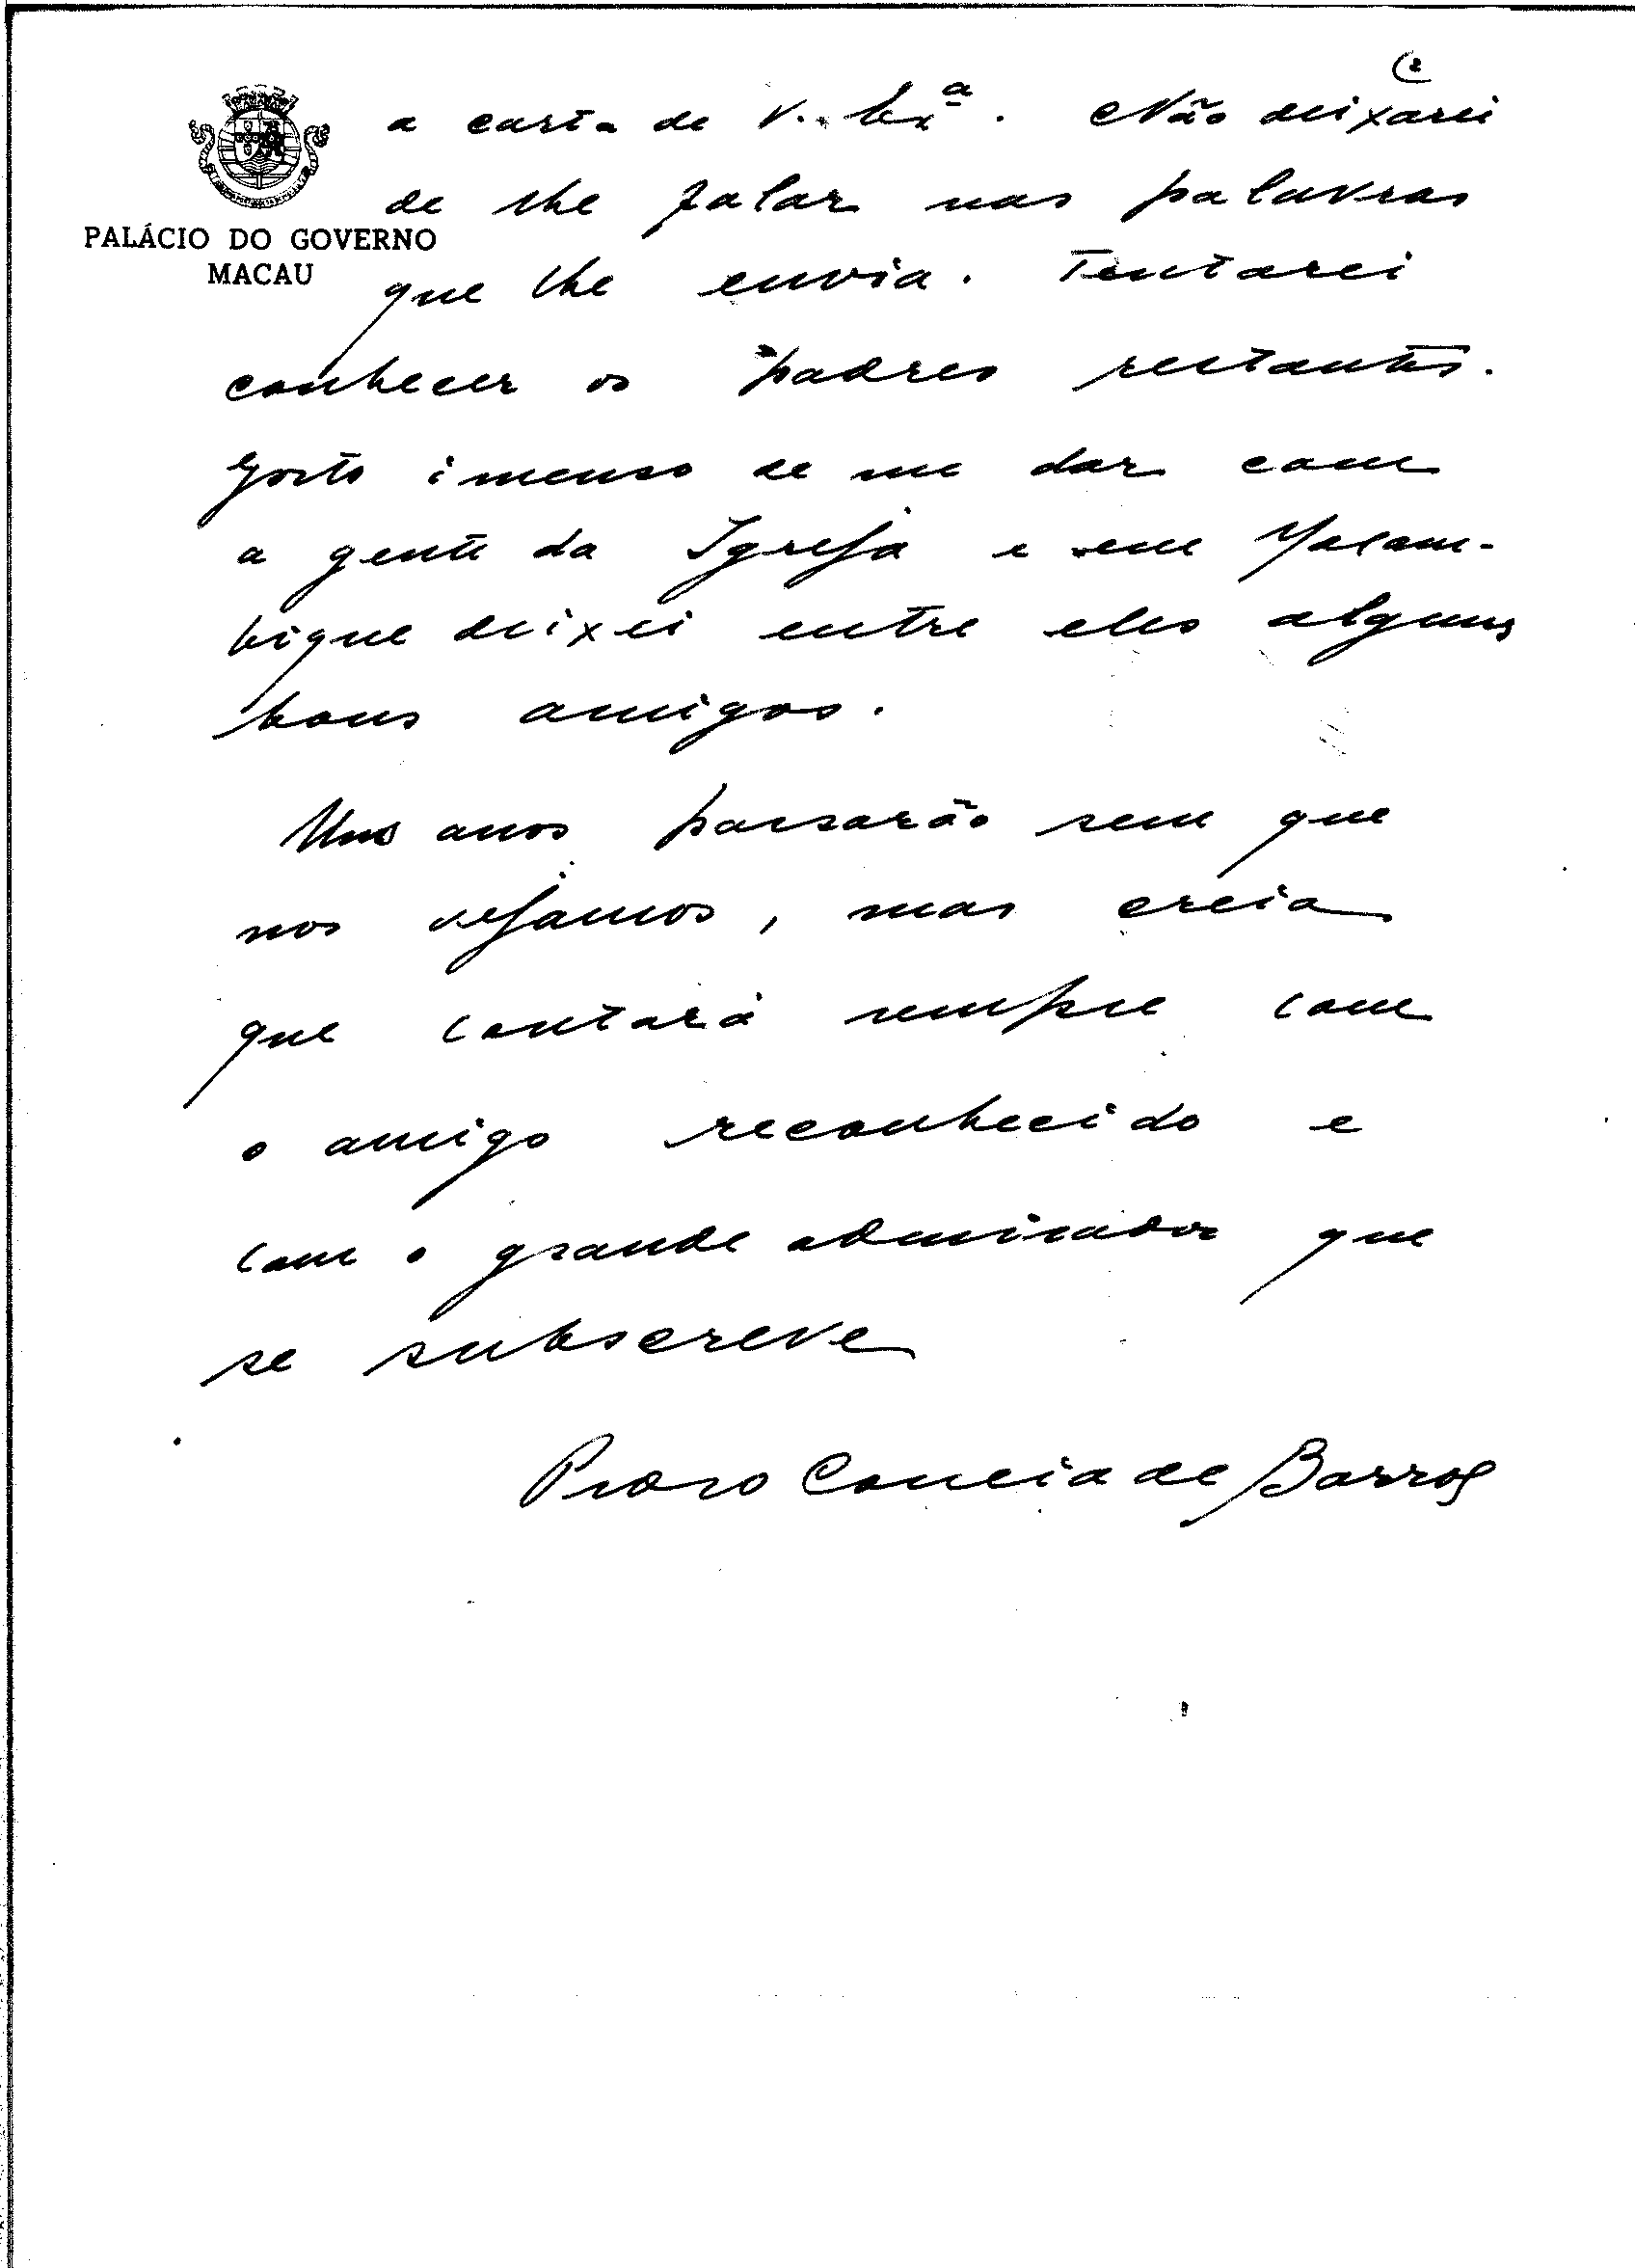 2
a carta de V. Exª. Não deixarei
de lhe falar nas palavras
PALÁCIO DO GOVERNO
MACAU
que lhe envia. Tentarei
conhecer os padres restantes.
Gosto imenso de me dar com
a gente da Igreja e em Moçam-
bique deixei entre eles alguns
bons amigos.
Uns anos passarão sem que
nos vejamos, mas creia
que contará sempre com
o amigo reconhecido e
com o grande admirador que
se subscreve
Pedro Correia de Barros